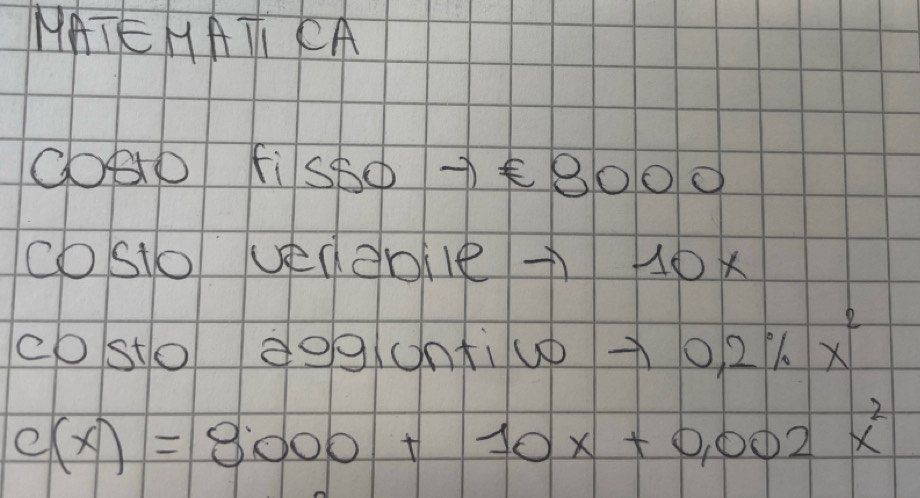 MATEMATICA
costo fisso → € 8000
costo variabile → 10x
costo aggiuntivo → 0,2% x²
c(x) = 8.000 + 10x + 0,002 x²